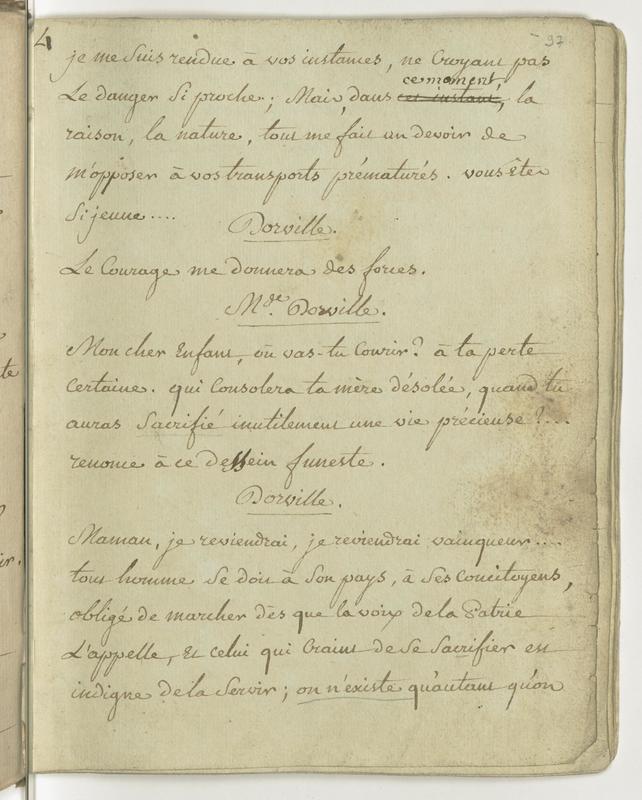 4 97
je me suis rendue à vos instances, ne croyant pas
ce moment
Le danger si proche; Mais, dans cet instant, la
raison, la nature, tout me fait un devoir de
m'opposer à vos transports prématurés. vous êtes
si jeune....
Dorville.
Le Courage me donnera des forces.
Mde. Dorville.
Mon cher Enfant, où vas-tu courir? à ta perte
certaine. qui consolera ta mère désolée, quand tu
auras sacrifié inutilement une vie précieuse?...
renonce à ce dessein funeste.
Dorville.
Maman, je reviendrai, je reviendrai vainqueur....
tout homme se doit à son pays, à ses concitoyens,
obligé de marcher dès que la voix de la Patrie
L'appelle, Et celui qui craint de se sacrifier est
indigne de la servir; on n'existe qu'autant qu'on
te
ir.